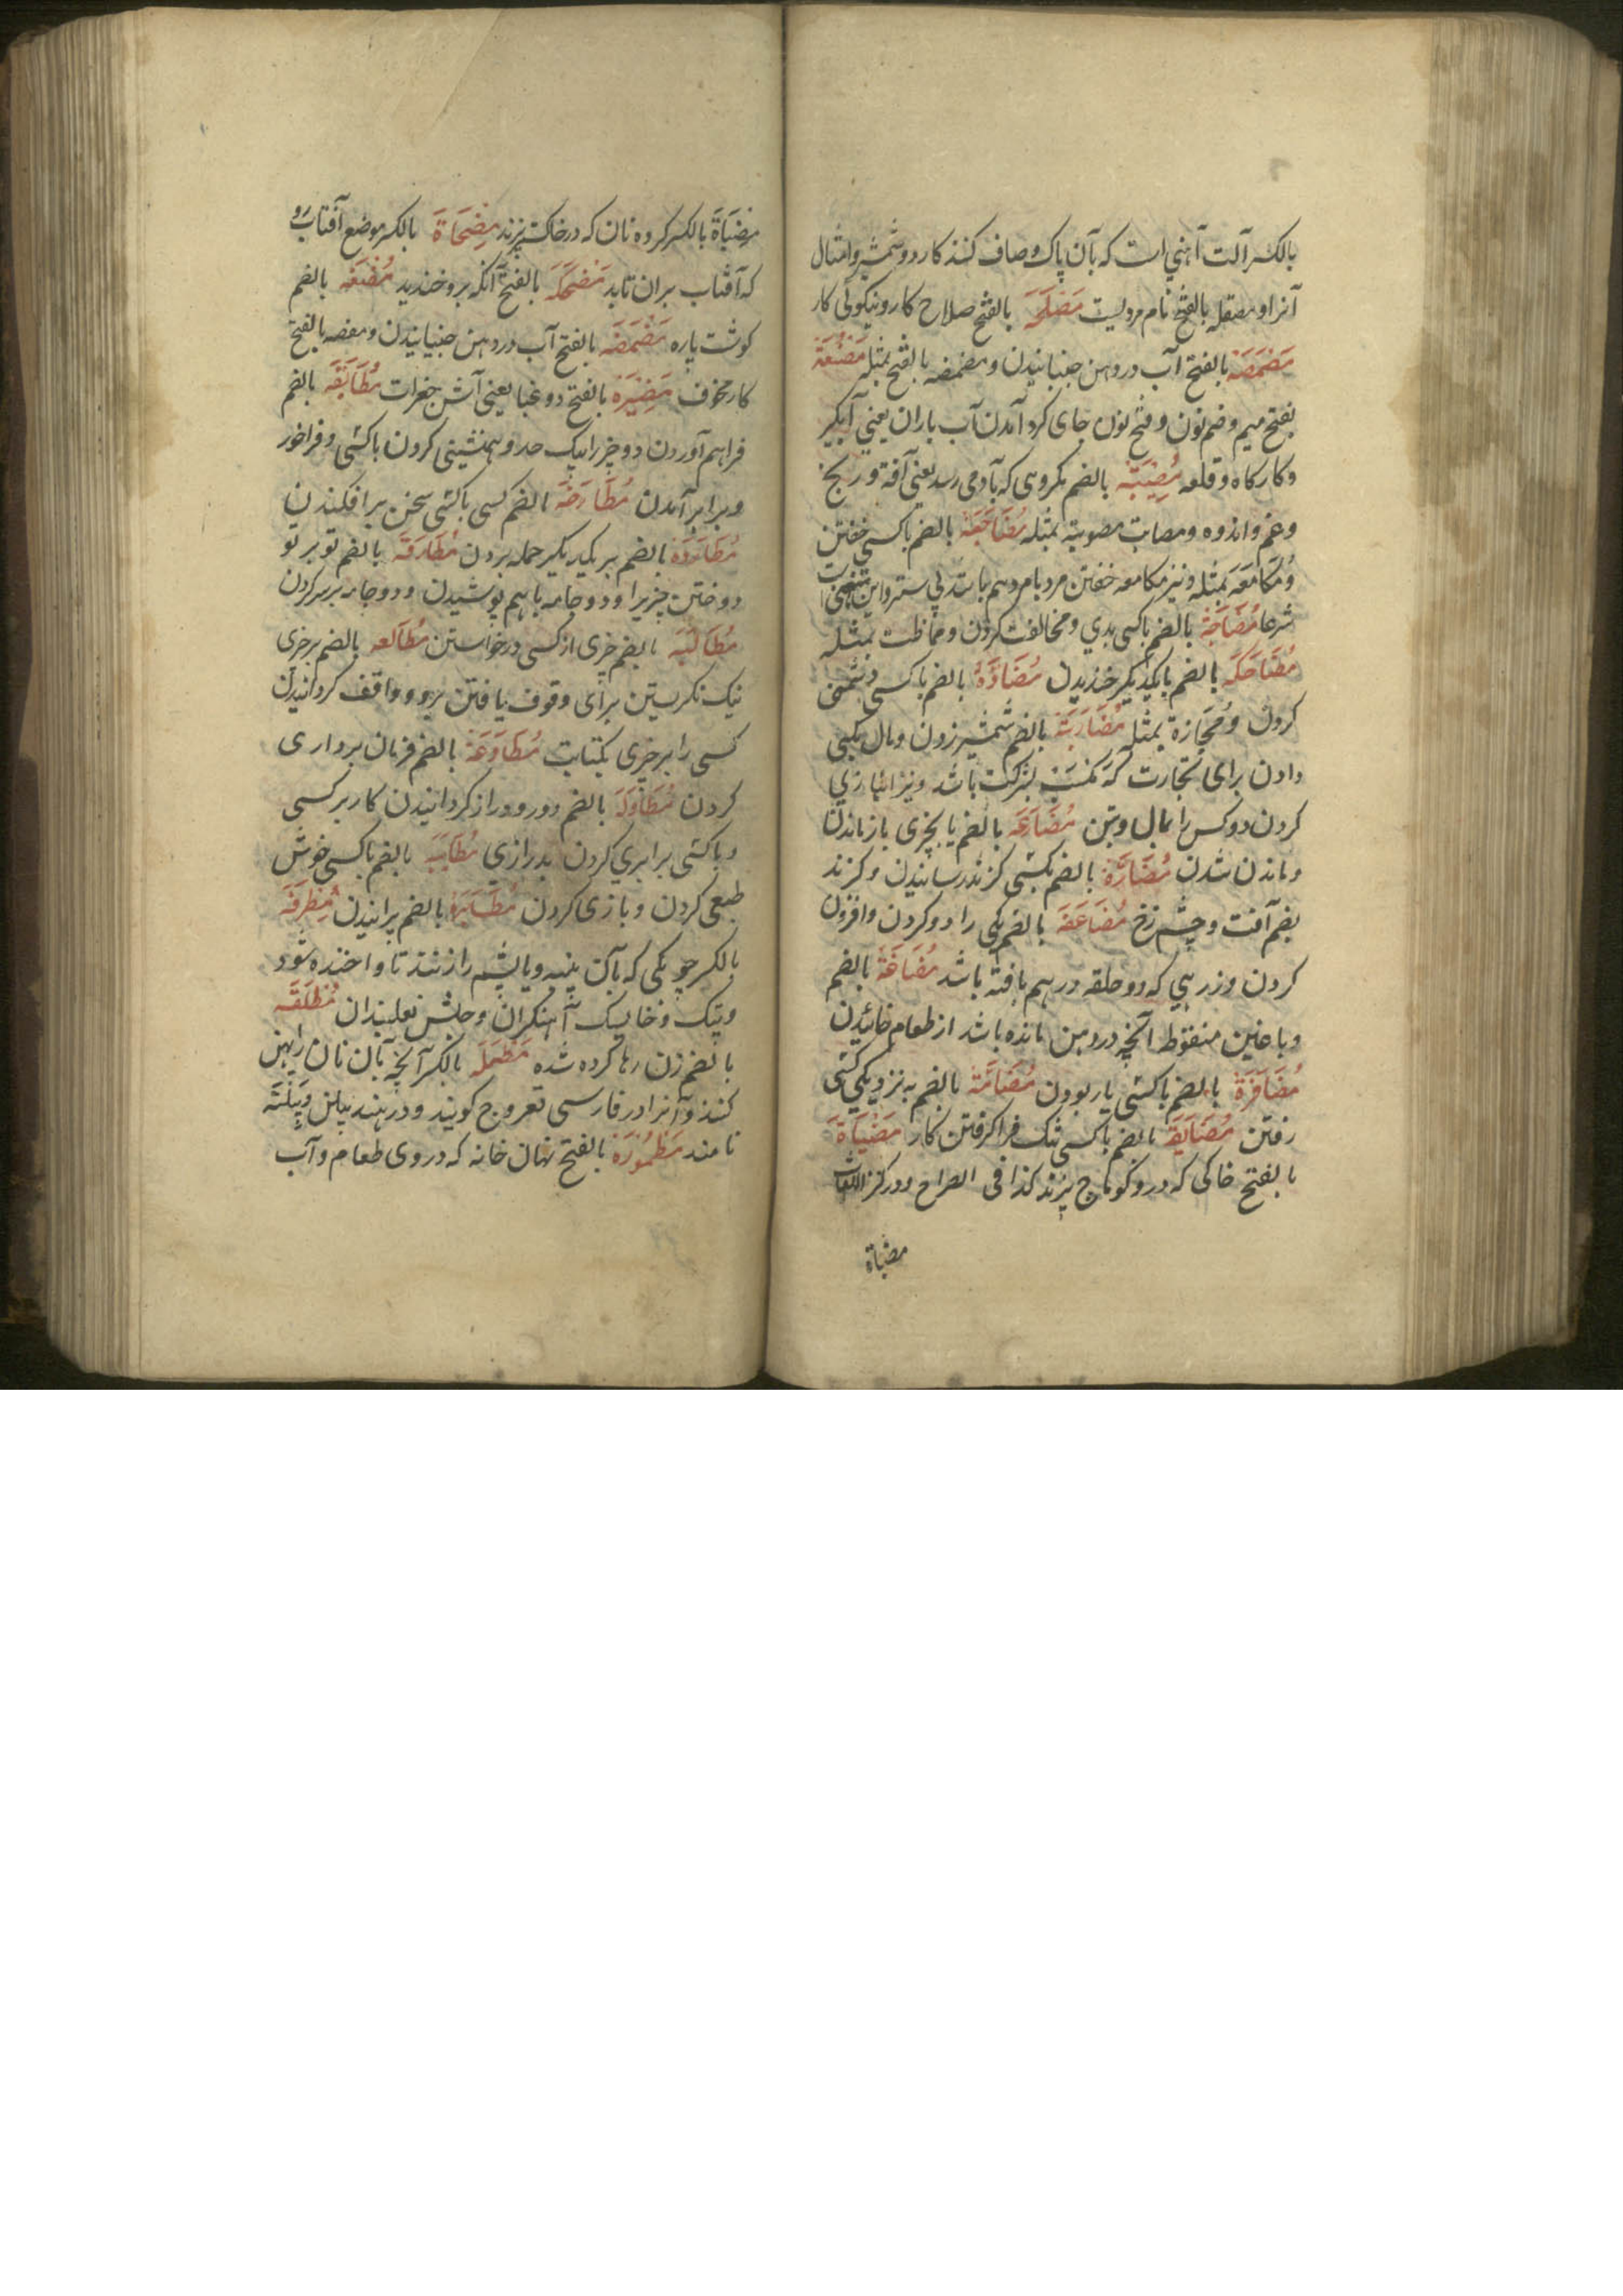 بالکسر آلت آهنی است که بآن پاک و صاف کنند کارد و شمشیر و امثال
آنرا و مصقله بالفتح نام مردیست مَصْلَحَة بالفتح صلاح کار و نیکوئی کار
مَصْمَصَة بالفتح آب در دهن جنبانیدن و مضمضه بالفتح بمثله مَصْنُعَة
بفتح میم و ضم نون و فتح نون جای گرد آمدن آب باران یعنی آبگیر
و کارگاه و قلعه مُصِیْبَة بالضم مکروهی که بآدمی رسد یعنی آفة و رنج
و غم و اندوه و مصابت مصوبة بمثله مُضَاجَعَة بالضم با کسی خفتن
و مُکَامَعَة بمثله و نیز مکامعه خفتن مرد با مرد بهم باشد بی ستر و این منهی است
شرعا بالضم با کسی بدی و مخالفت کردن و مماظت بمثله
مُضَاحَکَة بالضم با یکدیگر خندیدن مُضَادَّة بالضم با کسی دشمنی
کردن و مُجَازَة بمثله مُضَارَبَة بالضم شمشیر زدن و مال بکسی
دادن برای تجارت که کسب بشرکت باشد و نیز انبازی
کردن دو کس را بمال و بتن مُضَارَعَة بالضم با چیزی باز ماندن
و مانند شدن مُضَارَّة بالضم بکسی گزند رسانیدن و گزند
بضم آفت و چشم زخ مُضَاعَفَة بالضم یکی را دو کردن و افزون
کردن و زرهی که دو حلقه در هم بافته باشد مُضَاغَة بالضم
و با غین منقوطه آنچه در دهن مانده باشد از طعام خائیدن
مُضَافَرَة بالضم با کسی یار بودن مُضَامَّة بالضم به نزدیکی کسی
رفتن مُضَایَقَة بالضم با کسی تنگ فرا گرفتن کار مَضْبَاَة
بالفتح خاکی که درو کوماج پزند کذا فی الصراح و در کنز اللغات
مضباة
مِضْبَاَة بالکسر کروه نان که در خاکستر پزند مِضْحَاة بالکسر موضع آفتاب رو
که آفتاب بران تابد مَضْحَکَة بالفتح آنکه برو خندید مُضْغَه بالضم
گوشت پاره مَضْمَضَه بالفتح آب در دهن جنبانیدن و مضه بالفتح
کار مخوف مَضِیْرَة بالفتح دوغبا یعنی آش جغرات مُطَابَقَه بالضم
فراهم آوردن دو چیز را بیک حد و همنشینی کردن با کسی و فراخور
و برابر آمدن مُطَارَحَة بالضم کسی با کسی سخن بر افکندن
مُطَارَدَة بالضم بر یکدیگر حمله بردن مُطَارَقَة بالضم تو بر تو
دوختن چیزیرا و دو جامه با هم پوشیدن و دو جامه بر سر کردن
مُطَالَبَة بالضم چیزی از کسی درخواستن مُطَالَعه بالضم بر چیزی
نیک نگریستن برای وقوف یافتن برو و واقف گردانیدن
کسی را بر چیزی بکتابت مُطَاوَعَة بالضم فرمان برداری
کردن مُطَاوَلَة بالضم دور و دراز گردانیدن کار بر کسی
و با کسی برابری کردن بدرازی مُطَایَبَة بالضم با کسی خوش
طبعی کردن و بازی کردن بالضم پرانیدن مِطْرَقَة
بالکسر چوبکی که بآن پنبه و یا پشم را زنند تا واخنده شود
و پتک و خایسک آهنگران و نعلبندان مُطَلَّقَة
بالضم زن رها کرده شده مِطْمَلَة بالکسر آنچه بآن نان را پهن
کنند و آنرا در فارسی گویند و در هند بیلن و بیلنه
نامند مَطْمُوْرَة بالفتح نهان خانه که در وی طعام و آب